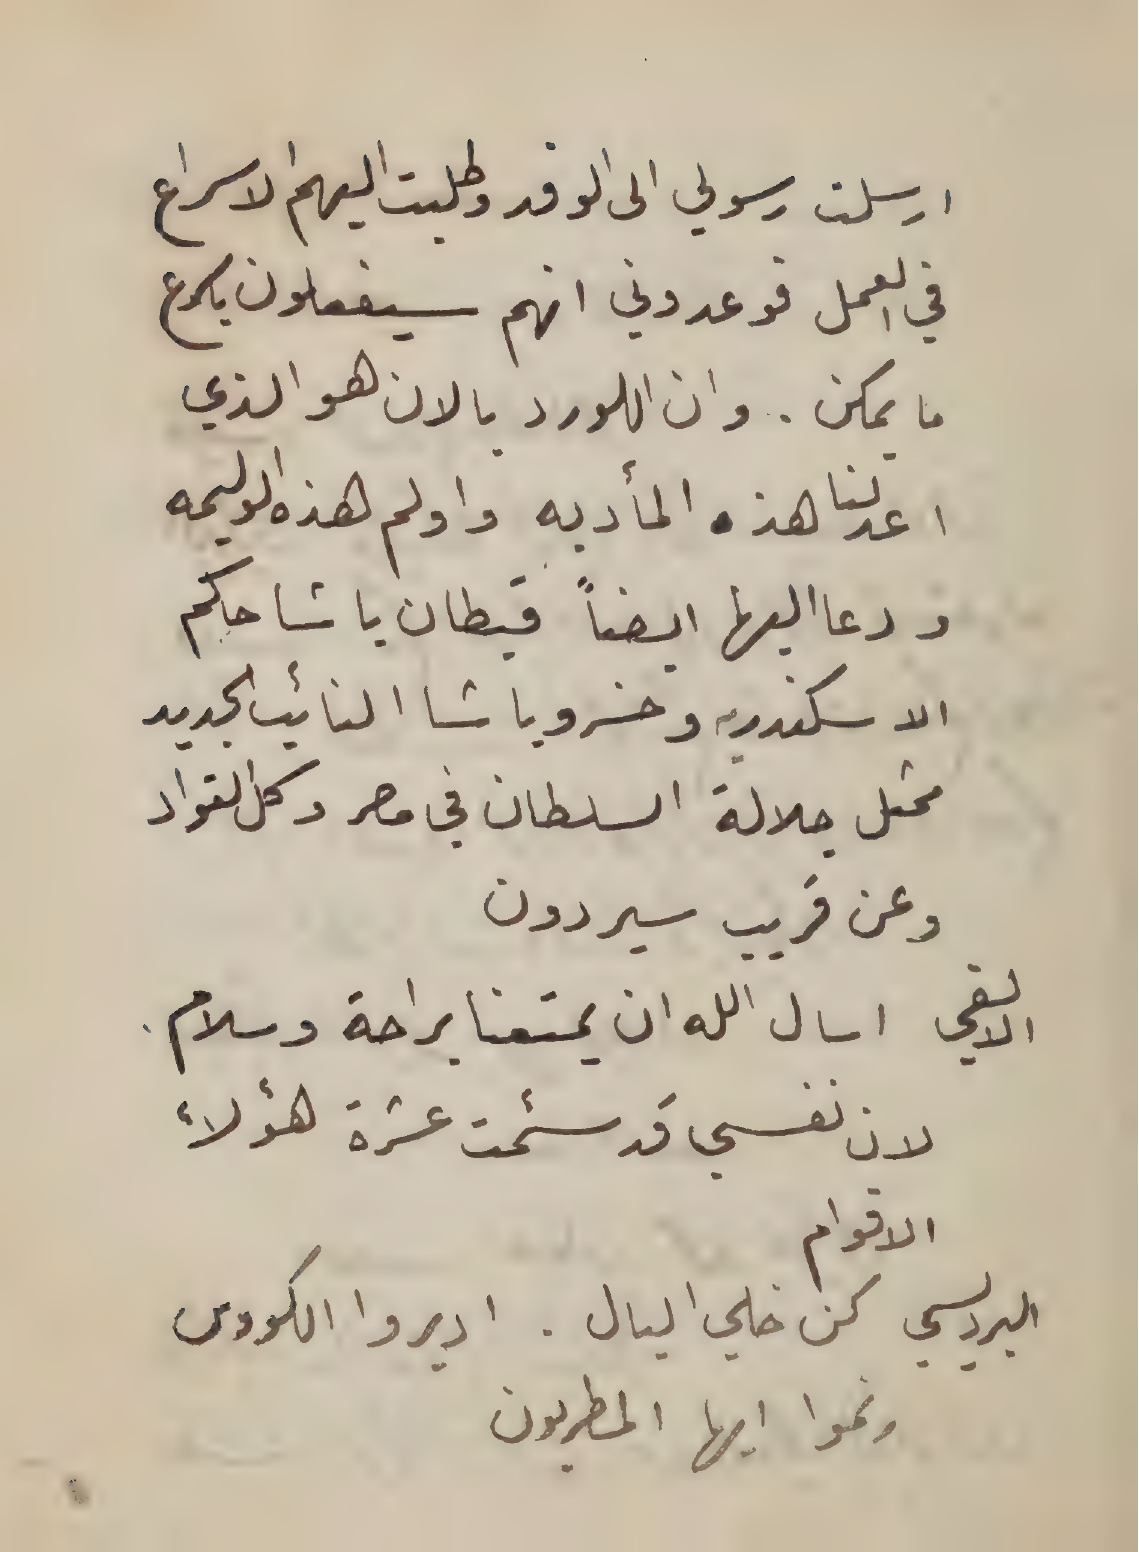 ارسلت رسولي الى الوفد وطلبت اليهم الاسراع
في العمل فوعدوني انهم سيفعلون باسرع
ما يمكن . وان اللورد بالان هو الذي
اعد لنا هذه المأدبه واولم هذه الوليمه
ودعا اليها ايضاً قبطان باشا حاكم
الاسكندريه وخسرو باشا النائب الجديد
ممثل جلالة السلطان في مصر وكل القواد
وعن قريب سيردون
الالفي اسال الله ان يمتعنا براحة وسلام .
لان نفسي قد سئمت عشرة هؤلاء
الاقوام
البرديسي كن خلي البال . اديروا الكووس
ونموا ايها المطربون